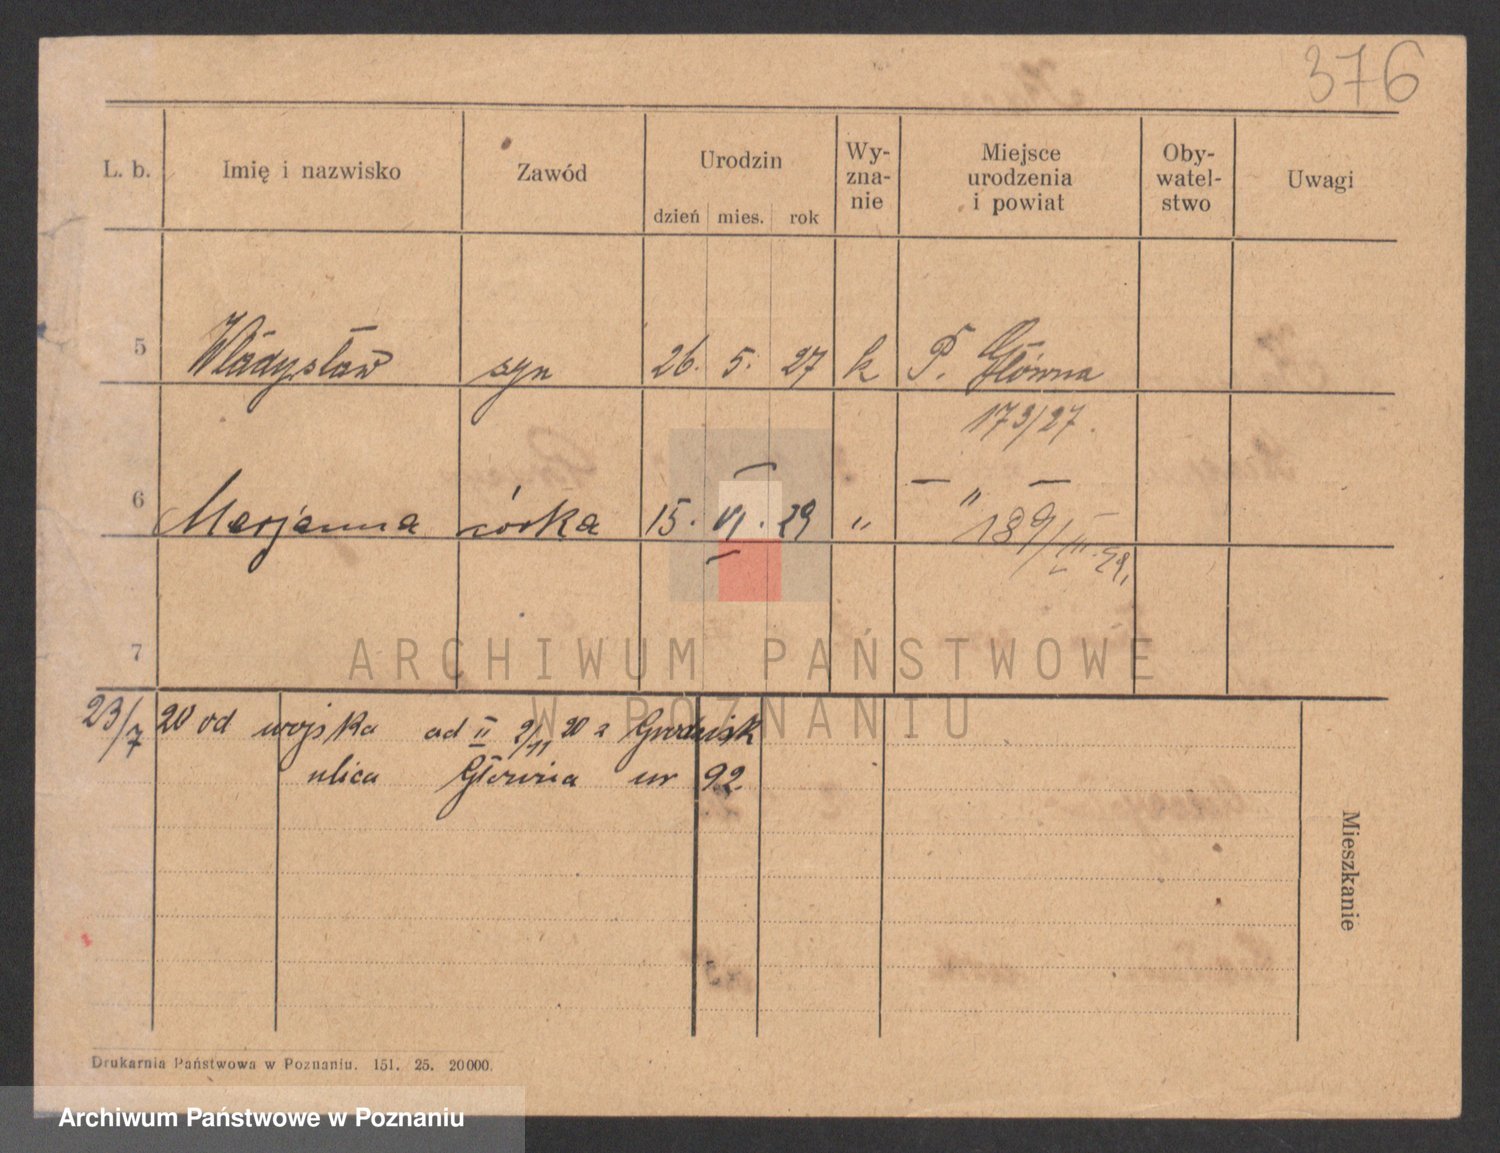 376
L. b. Imię i nazwisko Zawód Urodzin Wy-zna-nie Miejsce urodzenia i powiat Oby-watel-stwo Uwagi
dzień mies. rok
5 Władysław syn 26. 5. 27 k P. Główna
173/27.
6 Marjanna córka 15. VI. 29 " — " —
189/III. 29.
7
ARCHIWUM PAŃSTWOWE
W POZNANIU
23/7 20 od wojska od II 2/11 20 z Grodzisk
ulica Główna nr 92.
Mieszkanie
Drukarnia Państwowa w Poznaniu. 151. 25. 20000.
Archiwum Państwowe w Poznaniu